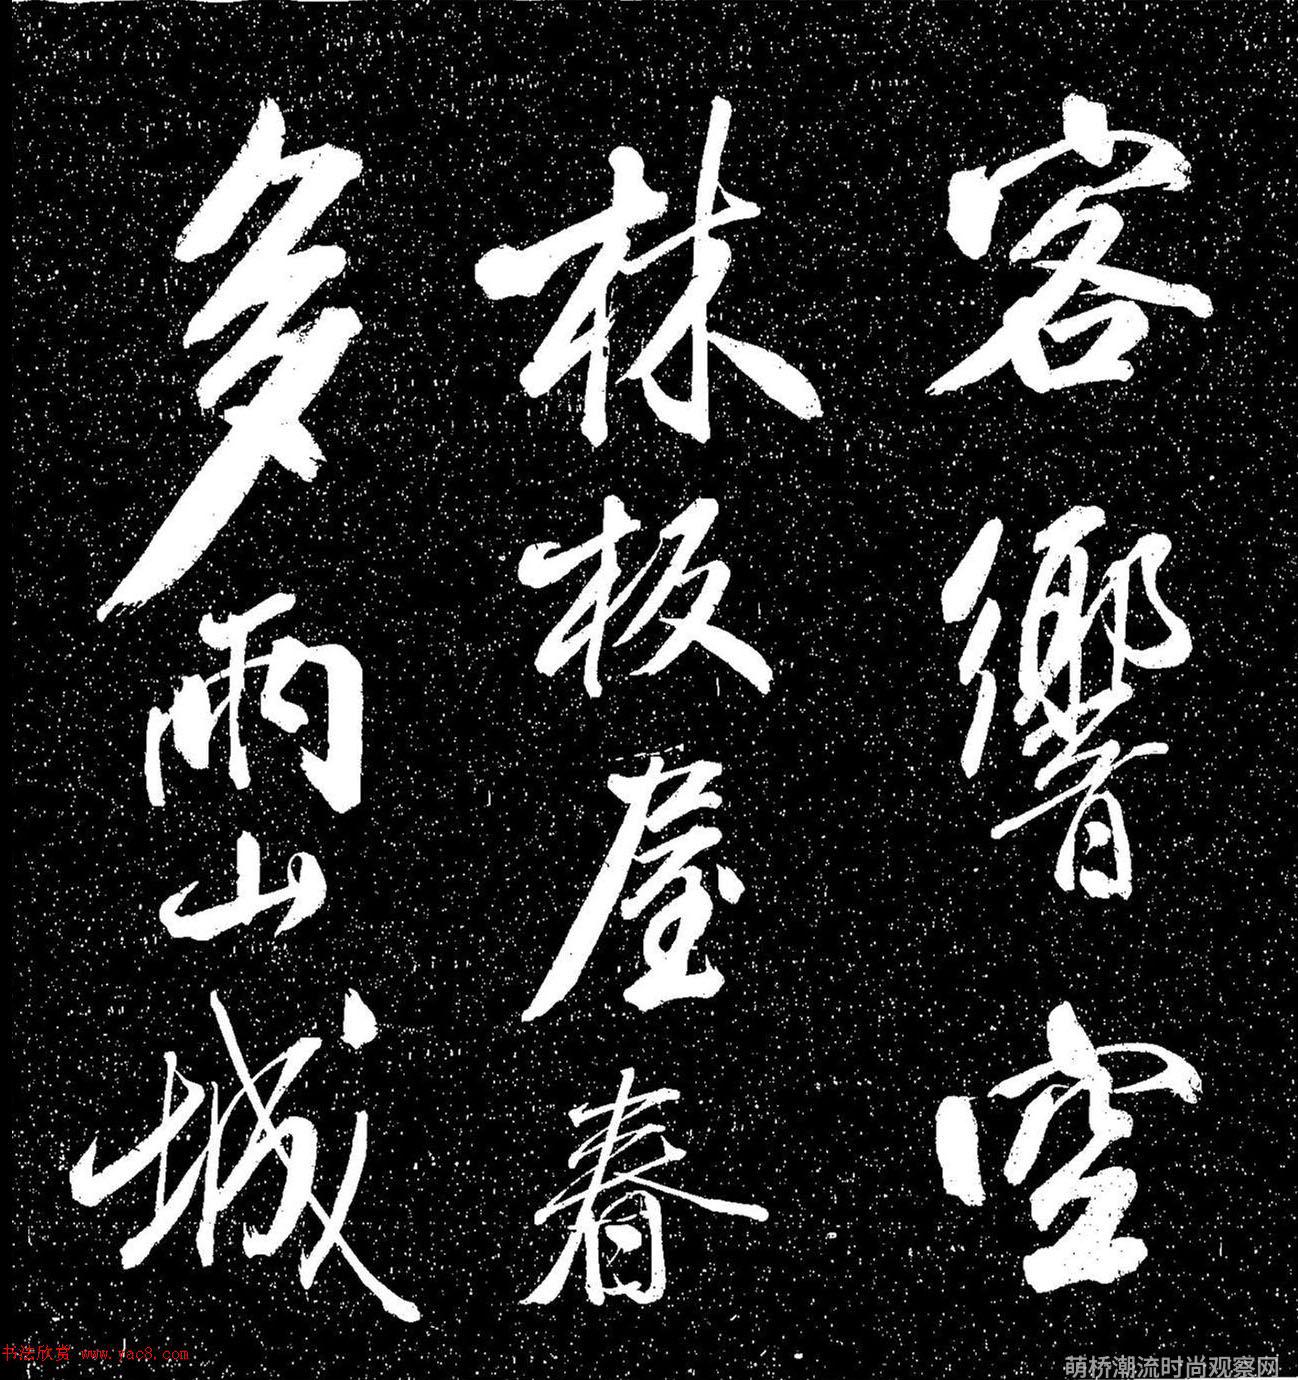 客響空
林板屋春
多雨山城
书法欣赏 www.yac8.com
萌桥潮流时尚观察网